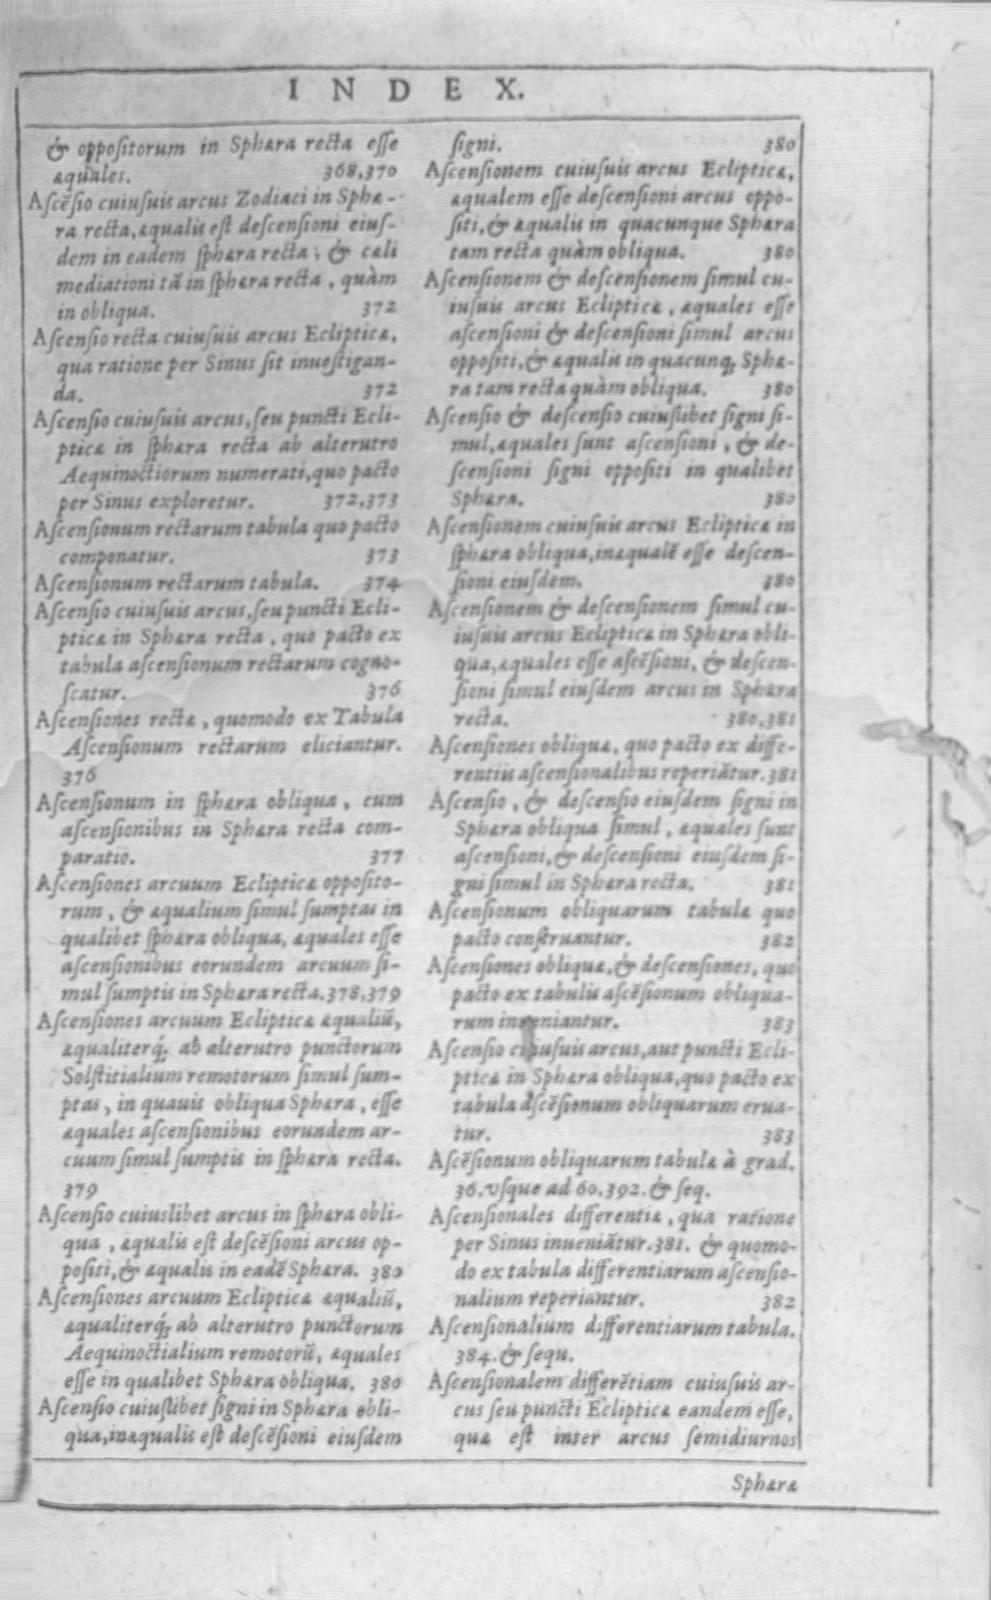 INDEX.
& oppositorum in Sphæra recta esse
æquales. 368,370
Ascẽsio cuiusuis arcus Zodiaci in Sphæ-
ra recta, æqualis est descensioni eius-
dem in eadem sphæra recta; & cæli
mediationi tã in sphæra recta, quàm
in obliqua. 372
Ascensio recta cuiusuis arcus Eclipticæ,
qua ratione per Sinus sit inuestigan-
da. 372
Ascensio cuiusuis arcus, seu puncti Ecli-
pticæ in sphæra recta ab alterutro
Aequinoctiorum numerati, quo pacto
per Sinus exploretur. 372,373
Ascensionum rectarum tabula quo pacto
componatur. 373
Ascensionum rectarum tabula. 374
Ascensio cuiusuis arcus, seu puncti Ecli-
pticæ in Sphæra recta, quo pacto ex
tabula ascensionum rectarum cogno-
scatur. 376
Ascensiones rectæ, quomodo ex Tabula
Ascensionum rectarum eliciantur.
376
Ascensionum in sphæra obliqua, cum
ascensionibus in Sphæra recta com-
paratio. 377
Ascensiones arcuum Eclipticæ opposito-
rum, & æqualium simul sumptas in
qualibet sphæra obliqua, æquales esse
ascensionibus eorundem arcuum si-
mul sumptis in Sphæra recta. 378,379
Ascensiones arcuum Eclipticæ æqualiũ,
æqualiterq́; ab alterutro punctorum
Solstitialium remotorum simul sum-
ptas, in quauis obliqua Sphæra, esse
æquales ascensionibus eorundem ar-
cuum simul sumptis in sphæra recta.
379
Ascensio cuiuslibet arcus in sphæra obli-
qua, æqualis est descẽsioni arcus op-
positi, & æqualis in eadẽ Sphæra. 380
Ascensiones arcuum Eclipticæ æqualiũ,
æqualiterq́; ab alterutro punctorum
Aequinoctialium remotorũ, æquales
esse in qualibet Sphæra obliqua. 380
Ascensio cuiuslibet signi in Sphæra obli-
qua, inæqualis est descẽsioni eiusdem
signi. 380
Ascensionem cuiusuis arcus Eclipticæ,
æqualem esse descensioni arcus oppo-
siti, & æqualis in quacunque Sphæra
tam recta quàm obliqua. 380
Ascensionem & descensionem simul cu-
iusuis arcus Eclipticæ, æquales esse
ascensioni & descensioni simul arcus
oppositi, & æqualis in quacunq; Sphæ-
ra tam recta quàm obliqua. 380
Ascensio & descensio cuiuslibet signi si-
mul, æquales sunt ascensioni, & de-
scensioni signi oppositi in qualibet
Sphæra. 380
Ascensionem cuiusuis arcus Eclipticæ in
sphæra obliqua, inæqualẽ esse descen-
sioni eiusdem. 380
Ascensionem & descensionem simul cu-
iusuis arcus Eclipticæ in Sphæra obli-
qua, æquales esse ascẽsioni, & descen-
sioni simul eiusdem arcus in Sphæra
recta. 380.381
Ascensiones obliquæ, quo pacto ex diffe-
rentiis ascensionalibus reperiãtur. 381
Ascensio, & descensio eiusdem signi in
Sphæra obliqua simul, æquales sunt
ascensioni, & descensioni eiusdem si-
gni simul in Sphæra recta. 381
Ascensionum obliquarum tabulæ quo
pacto construantur. 382
Ascensiones obliquæ, & descensiones, quo
pacto ex tabulis ascẽsionum obliqua-
rum inueniantur. 383
Ascensio cuiusuis arcus, aut puncti Ecli-
pticæ in Sphæra obliqua, quo pacto ex
tabula ascẽsionum obliquarum erua-
tur. 383
Ascẽsionum obliquarum tabulæ à grad.
36. vsque ad 60. 392. & seq.
Ascensionales differentiæ, qua ratione
per Sinus inueniãtur. 381. & quomo-
do ex tabula differentiarum ascensio-
nalium reperiantur. 382
Ascensionalium differentiarum tabula.
384. & sequ.
Ascensionalem differẽtiam cuiusuis ar-
cus seu puncti Eclipticæ eandem esse,
quæ est inter arcus semidiurnos
Sphæræ